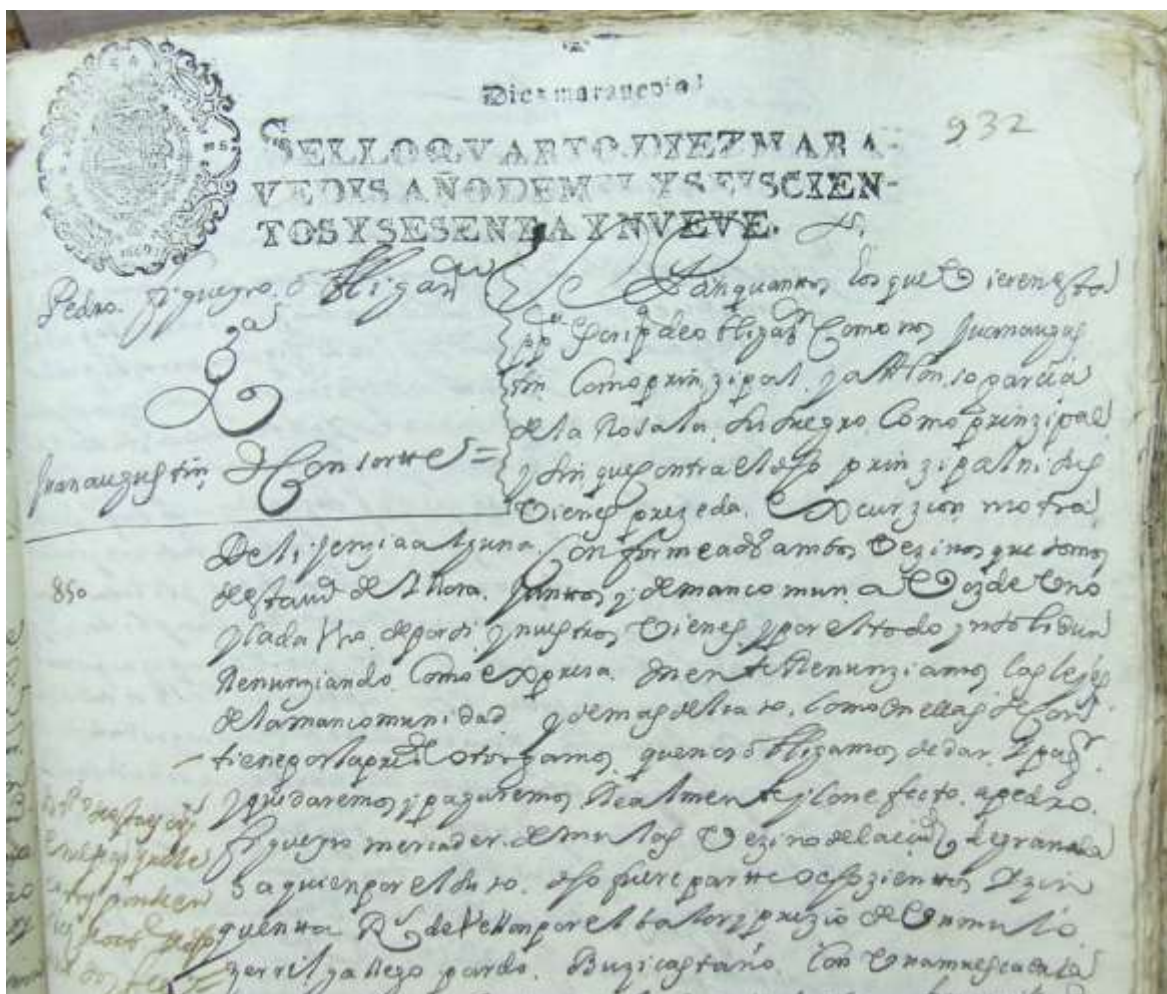 Diez marauedis
932
SELLO QVARTO, DIEZ MARA-
VEDIS, AÑO DE MIL Y SEISCIEN-
TOS Y SESENTA Y NVEVE.
Pedro figuero obligaon
Juan augustin Consortte =
Sepan quantos los que Vieren esta
ppca Scripa de obligaon Como nos Juan augus
tin Como prinzipal y Alonso garcia
de la Rosa la su suegro Como prinzipal
y sin que contra el dho prinzipal ni sus
Vienes prezeda Excurzion ni otra
Delijenzia alguna Conforme a dro ambos Vezinos que somos
desta uid de Illora Juntos y demancomun a Voz de Vno
y cada Vno de por si y nuestros Vienes y por el todo ynsolidun
Renunziando Como expresa mente Renunziamos las leyes
de la mancomunidad y demas del caso Como en ellas se con
tiene por la presste otorgamos que nos obligamos de dar y pagr
y que daremos y pagaremos Realmente y Con efecto a pedro
figuero mercader de mulas Vezino de la ciud de granada
v a quien por el suso dho fuere partte ochozientos y zin
quenta Rs de Vellon por el balor y prezio de Vn mulo
zerril gallego pardo Buzicastaño Con Vna muesca en la
850